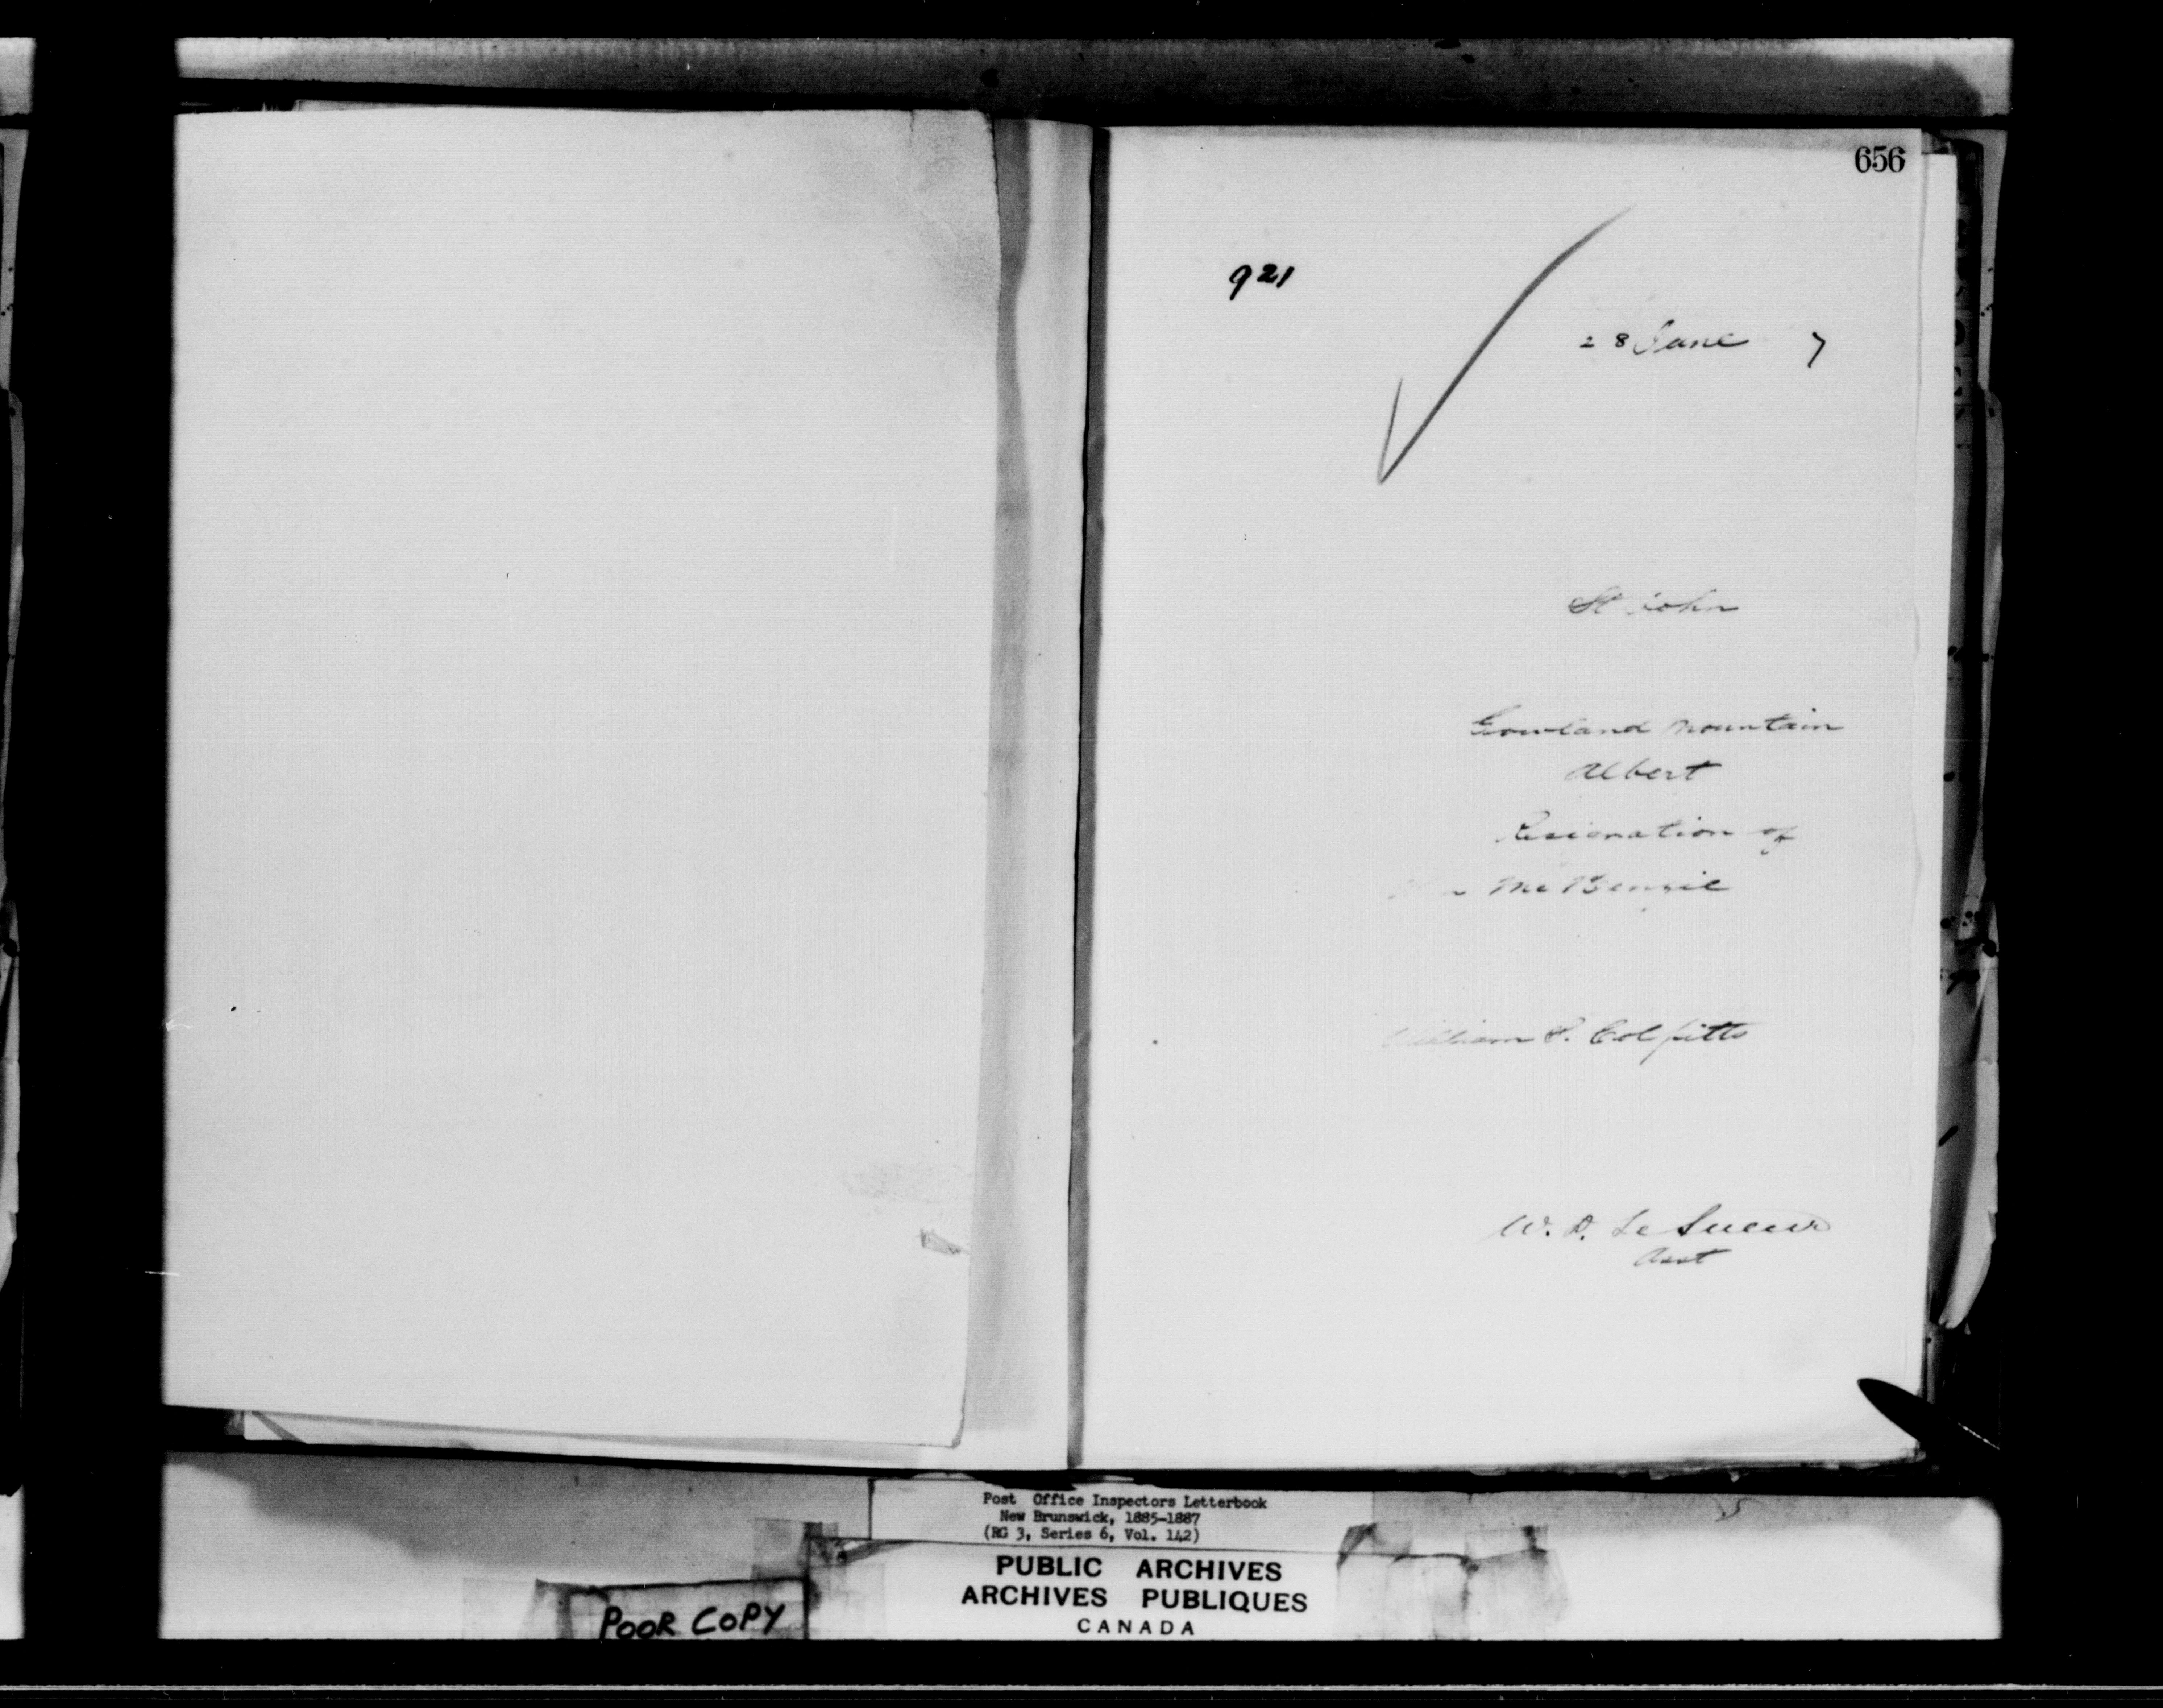 656
921
28 June 7
St John
Gowland Mountain
Albert
Resignation of
McKenzie
William S. Colpitts
W. D. Le Sueur
Asst
Post Office Inspectors Letterbook
New Brunswick, 1885-1887
(RG 3, Series 6, Vol. 142)
PUBLIC ARCHIVES
ARCHIVES PUBLIQUES
CANADA
POOR COPY